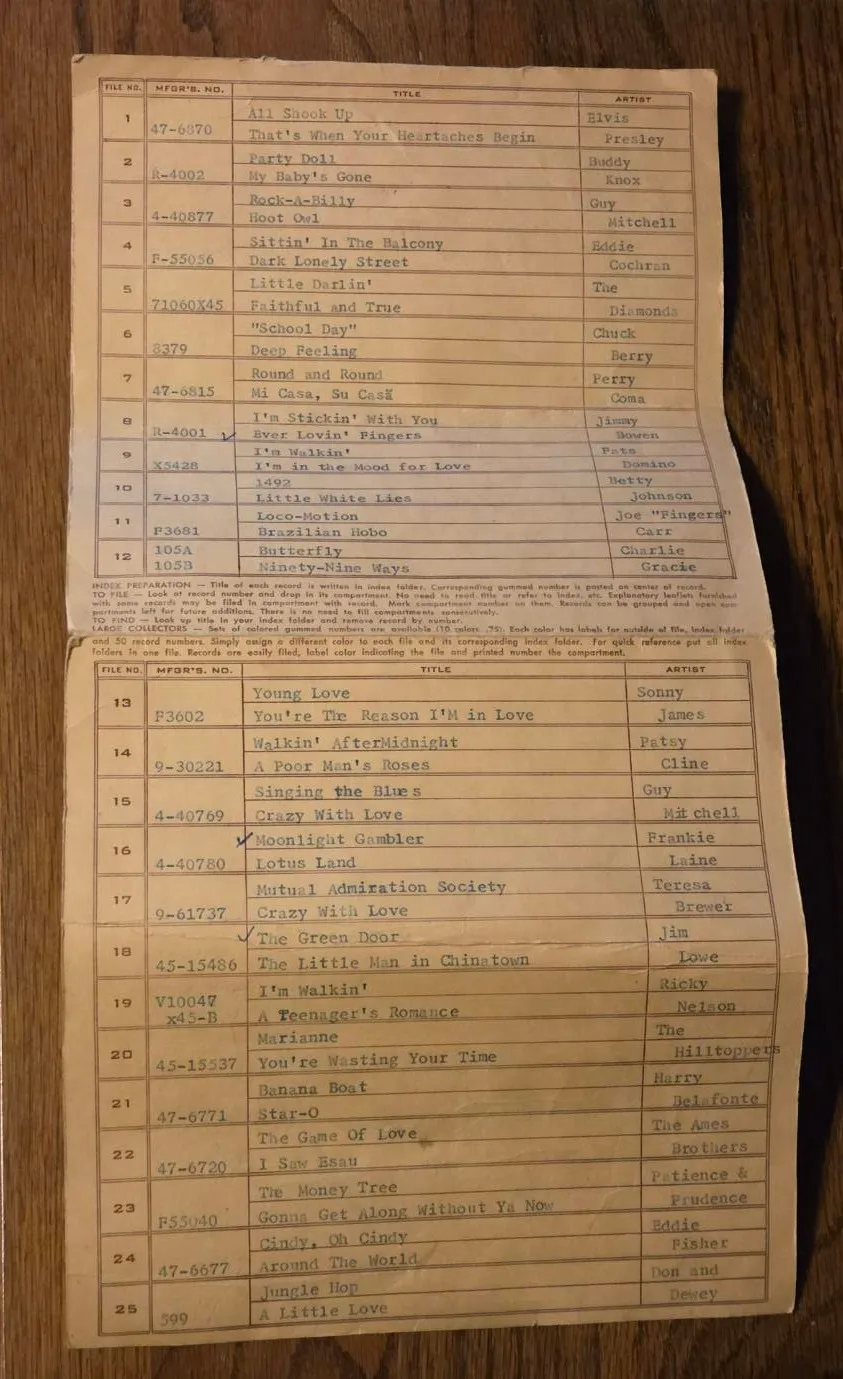 FILE NO. MFGR'S. NO. TITLE ARTIST
1 47-6870 All Shook Up Elvis
That's When Your Heartaches Begin Presley
2 Party Doll Buddy
R-4002 My Baby's Gone Knox
3 Rock-A-Billy Guy
4-40877 Hoot Owl Mitchell
4 Sittin' In The Balcony Eddie
F-55056 Dark Lonely Street Cochran
5 Little Darlin' The
71060X45 Faithful and True Diamonds
6 "School Day" Chuck
8379 Deep Feeling Berry
7 Round and Round Perry
47-6815 Mi Casa, Su Casa Coma
8 I'm Stickin' With You Jimmy
R-4001 ✓ Ever Lovin' Fingers Bowen
9 I'm Walkin' Fats
X5428 I'm in the Mood for Love Domino
10 1492 Betty
7-1033 Little White Lies Johnson
11 Loco-Motion Joe "Fingers"
F3681 Brazilian Hobo Carr
12 105A Butterfly Charlie
105B Ninety-Nine Ways Gracie
INDEX PREPARATION — Title of each record is written in index folder. Corresponding gummed number is posted on center of record.
TO FILE — Look at record number and drop in its compartment. No need to read title or refer to index, etc. Explanatory leaflets furnished
with some records may be filed in compartment with record. Mark compartment number on them. Records can be grouped and open com-
partments left for future additions. There is no need to fill compartments consecutively.
TO FIND — Look up title in your index folder and remove record by number.
LARGE COLLECTORS — Sets of colored gummed numbers are available (10 colors .75). Each color has labels for outside of file, index folder
and 50 record numbers. Simply assign a different color to each file and its corresponding index folder. For quick reference put all index
folders in one file. Records are easily filed, label color indicating the file and printed number the compartment.
FILE NO. MFGR'S. NO. TITLE ARTIST
13 Young Love Sonny
F3602 You're The Reason I'M in Love James
14 Walkin' AfterMidnight Patsy
9-30221 A Poor Man's Roses Cline
15 Singing the Blues Guy
4-40769 Crazy With Love Mitchell
16 ✓ Moonlight Gambler Frankie
4-40780 Lotus Land Laine
17 Mutual Admiration Society Teresa
9-61737 Crazy With Love Brewer
18 ✓ The Green Door Jim
45-15486 The Little Man in Chinatown Lowe
19 V10047 I'm Walkin' Ricky
x45-B A Teenager's Romance Nelson
20 Marianne The
45-15537 You're Wasting Your Time Hilltoppers
21 Banana Boat Harry
47-6771 Star-O Belafonte
22 The Game Of Love The Ames
47-6720 I Saw Esau Brothers
23 The Money Tree Patience &
F55040 Gonna Get Along Without Ya Now Prudence
24 Cindy, Oh Cindy Eddie
47-6677 Around The World Fisher
25 Jungle Hop Don and
599 A Little Love Dewey